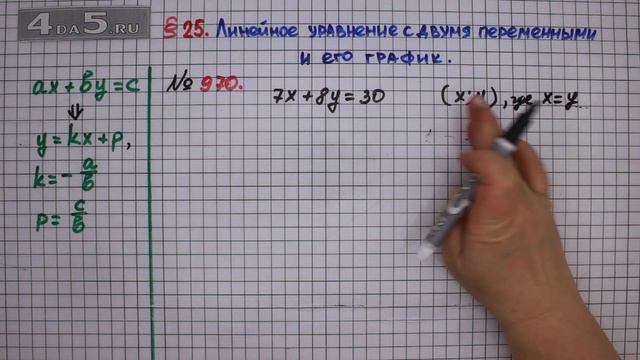 4DA5.RU
§ 25. Линейное уравнение с двумя переменными
и его график.
ax + by = c
⇓
y = kx + p,
k = - a/b
p = c/b
№ 970.
7x + 8y = 30
(x; y), где x = y